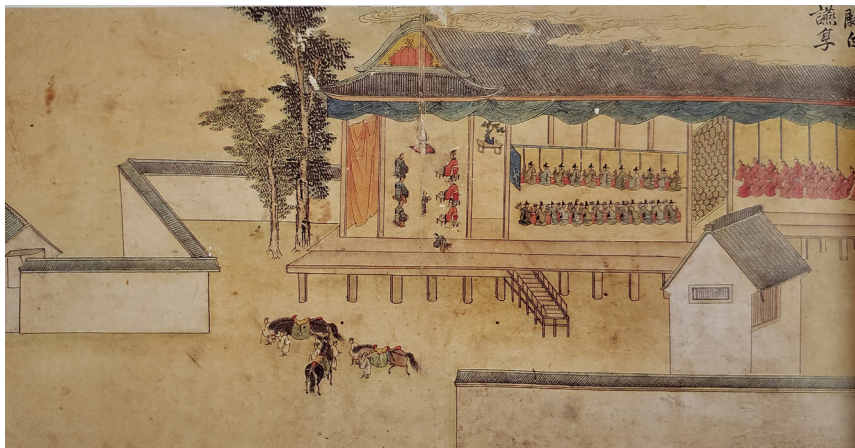 關白
讌享